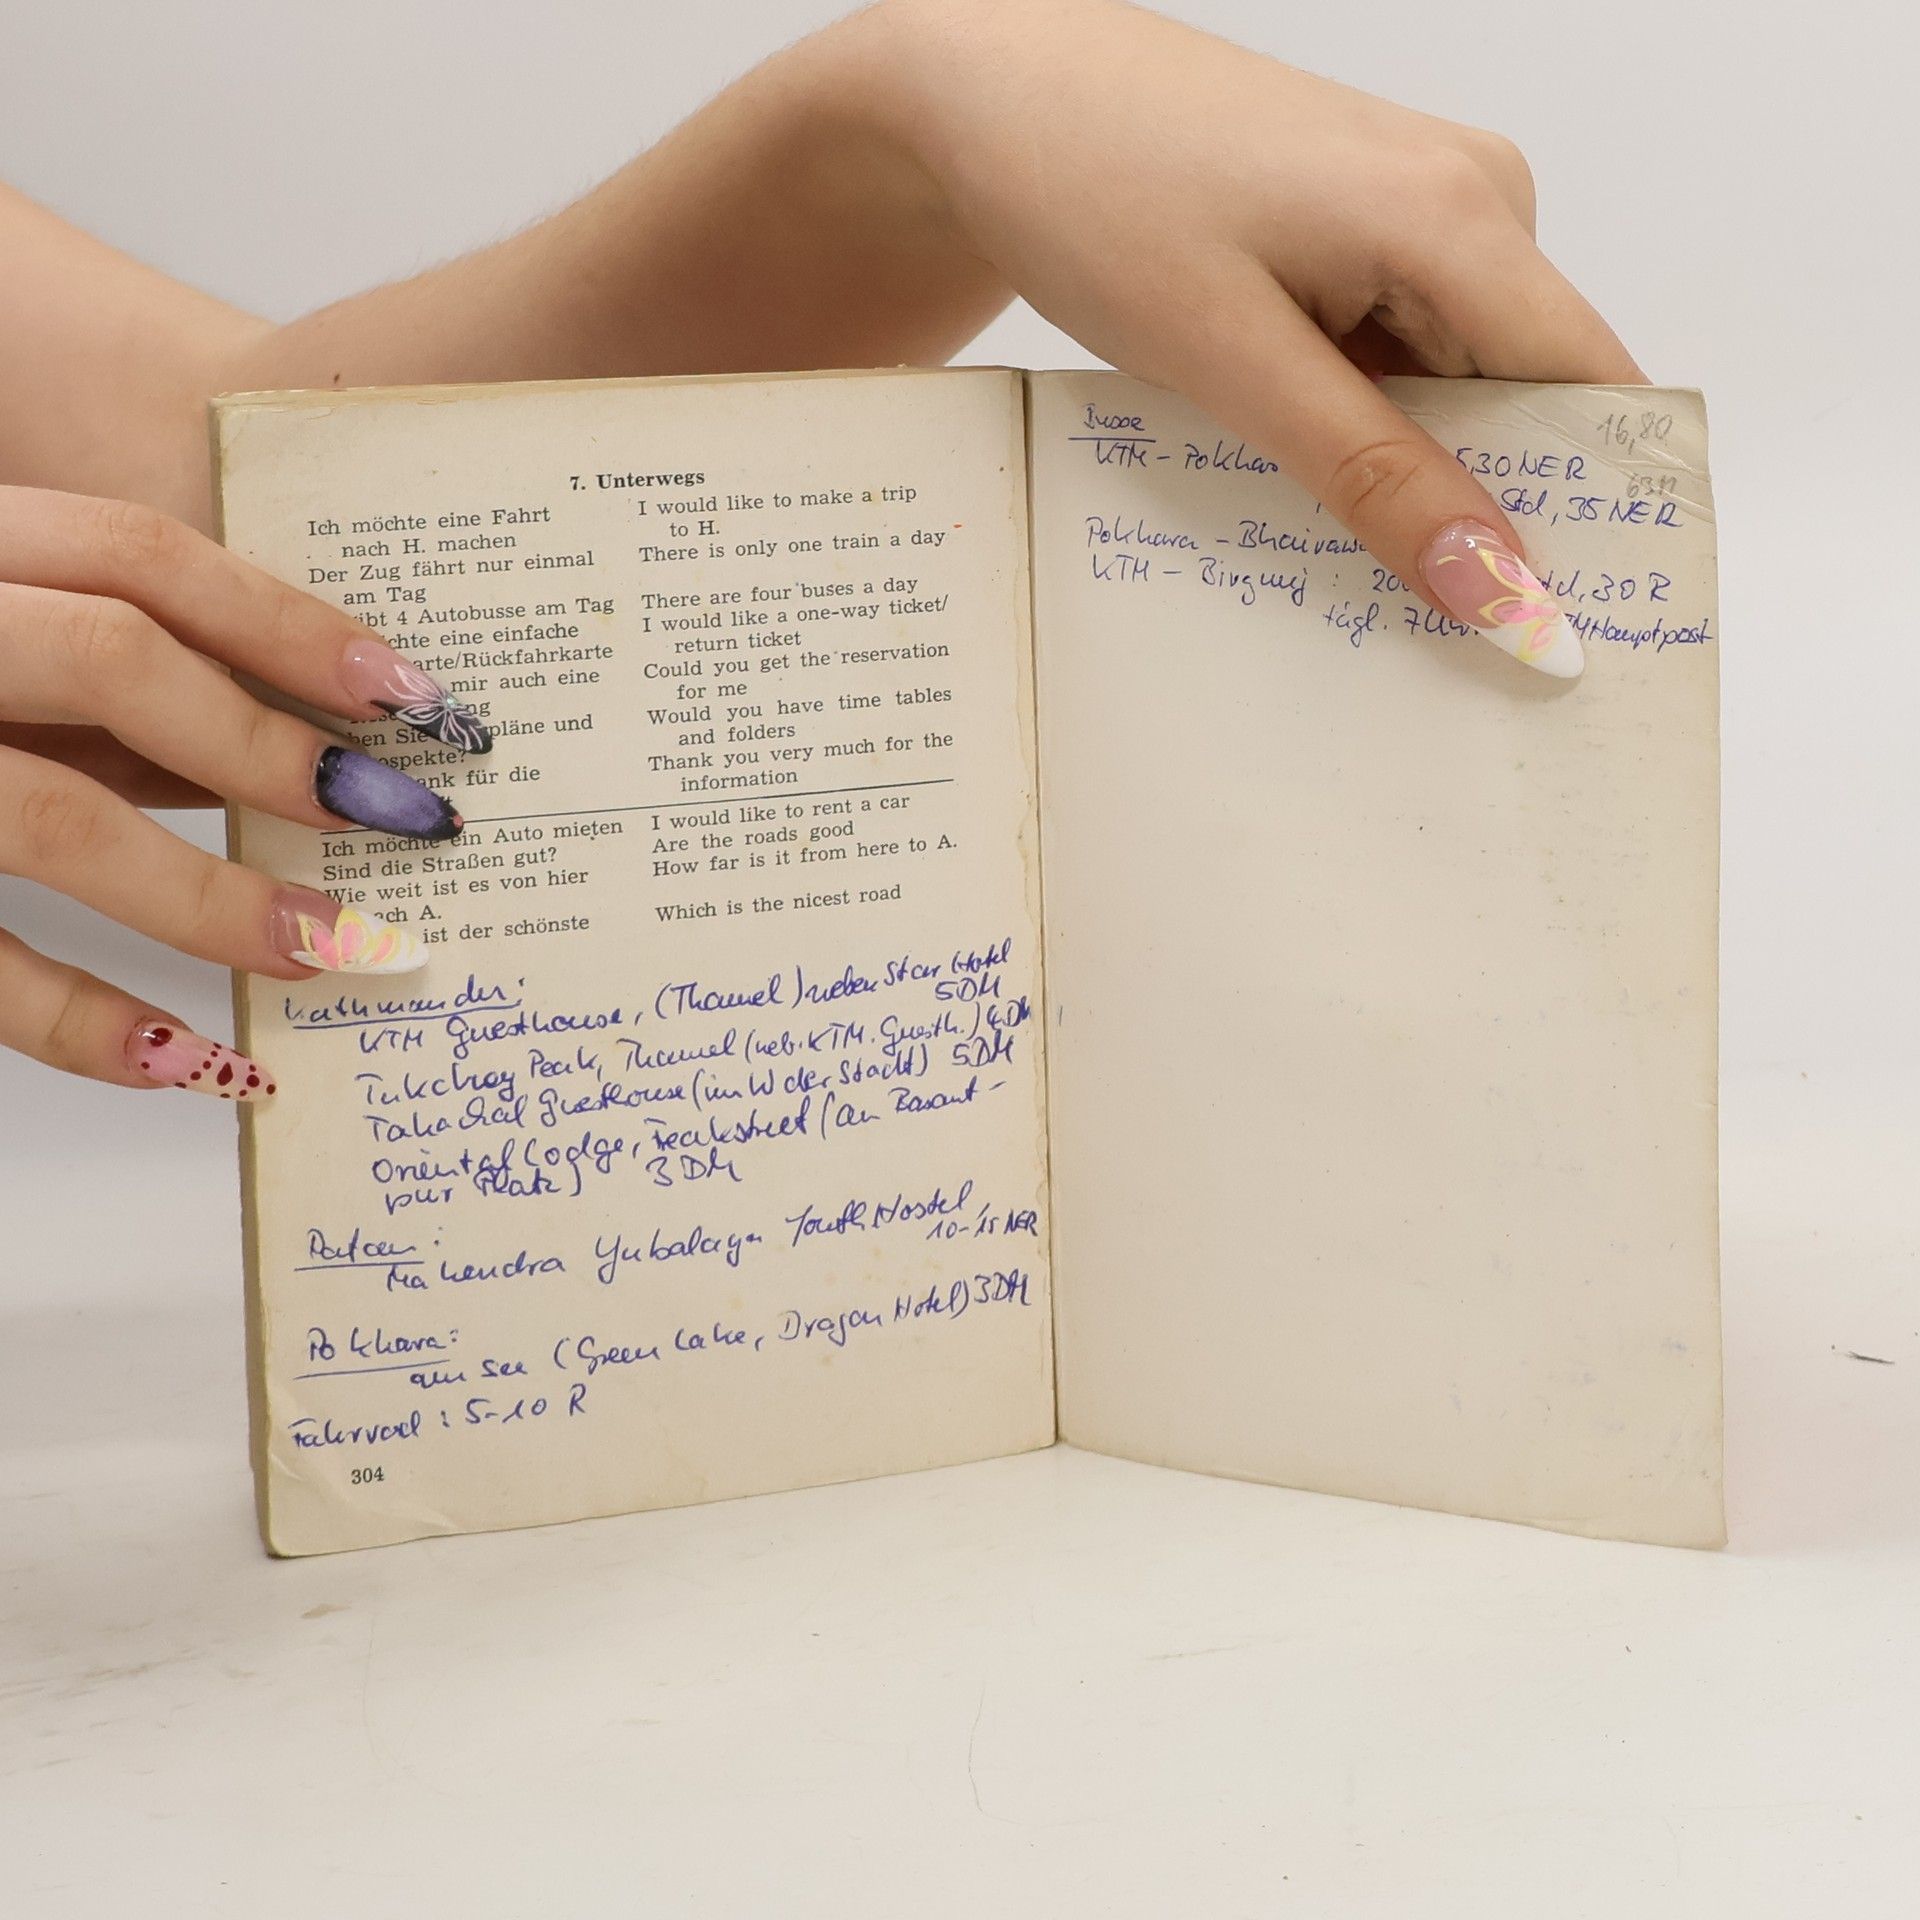 7. Unterwegs
Ich möchte eine Fahrt
nach H. machen
Der Zug fährt nur einmal
am Tag
ibt 4 Autobusse am Tag
chte eine einfache
arte/Rückfahrkarte
mir auch eine
ng
ben Sie pläne und
ospekte?
ank für die
I would like to make a trip
to H.
There is only one train a day
There are four buses a day
I would like a one-way ticket/
return ticket
Could you get the reservation
for me
Would you have time tables
and folders
Thank you very much for the
information
Ich möchte ein Auto mieten
Sind die Straßen gut?
Wie weit ist es von hier
ach A.
ist der schönste
I would like to rent a car
Are the roads good
How far is it from here to A.
Which is the nicest road
Kathmandu:
KTM Guesthouse, (Thamel) neben Star Hotel
5DM
Peak, Thamel (neb. KTM. Guesth.) 4DM
Guesthouse (im W der Stadt) 5DM
Oriental Lodge, Freakstreet (am Basant-
pur Platz) 3DM
Patan:
Mahendra Yubalaya Youth Hostel,
10-15 NER
Pokhara:
am See (Green Lake, Dragon Hotel) 3DM
Fahrrad: 5-10 R
304
16,80
Busse
KTM - Pokhar 5,30 NER
Std, 35 NER
Pokhara - Bhairawa
KTM - Birgunj: 20 td, 30 R
tägl. 7 Uhr TM Hauptpost